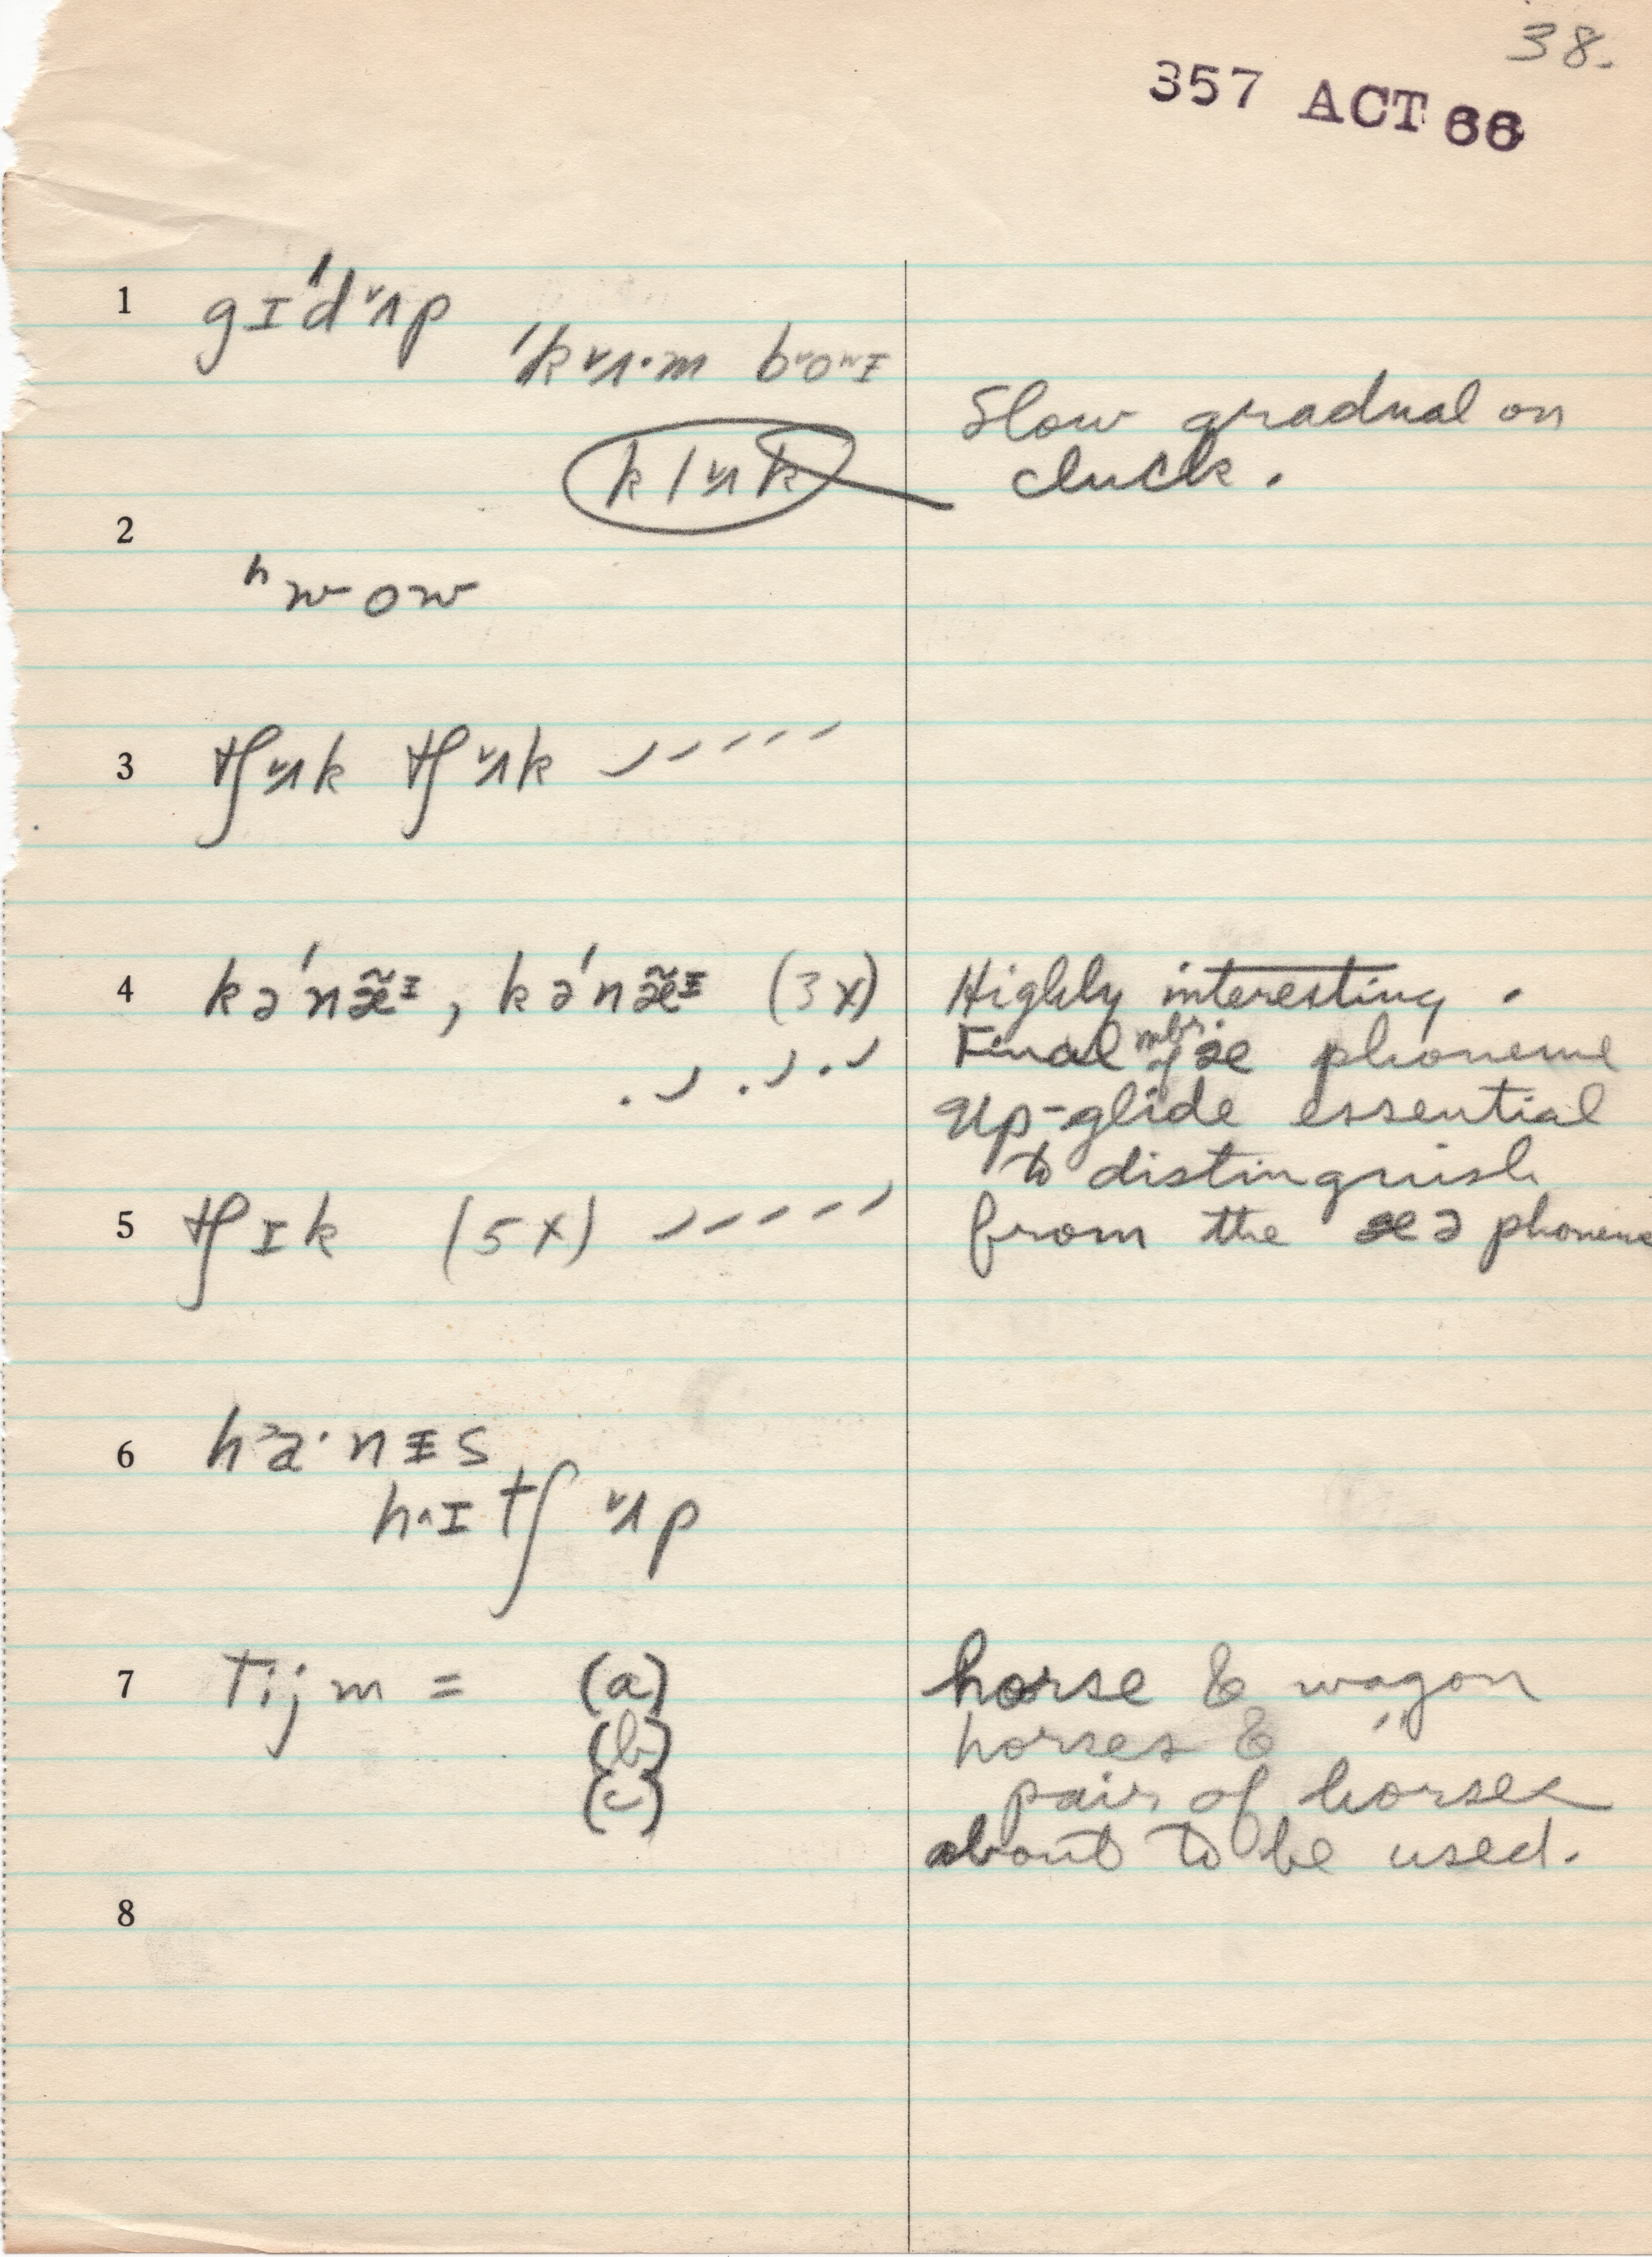 38.
357 ACT 66
1 gɪˈdˇʌp
ˈkˇʌ·m bˇoʷɪ
klˇʌk Slow gradual on
cluck.
2
ʰwow
3 tʃˇʌk tʃˇʌk
4 kəˈnæ̃ᶧ, kəˈnæ̃ᶧ (3x) Highly interesting.
Final mbr. of æ phoneme
Up-glide essential
to distinguish
5 tʃɪk (5x) from the ə phoneme
6 h˃a·nᵻs
h^ɪtʃ ˇʌp
7 Tijm = (a) horse & wagon
(b) horses & "
(c) pair of horses
about to be used.
8